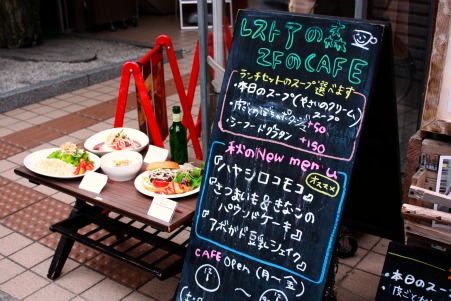 レストアの森
2FのCAFE
ランチセットのスープ選べます
・本日のスープ(やさいのクリーム)
スープ +50
・シーフードグラタン +150
秋のNew menu
『ハヤシロコモコ』 オススメ
『さつまいも&きなこの
パウンドケーキ』
『アボカド豆乳シェイク』
CAFE Open (月〜金)
〜
・本日のスープ